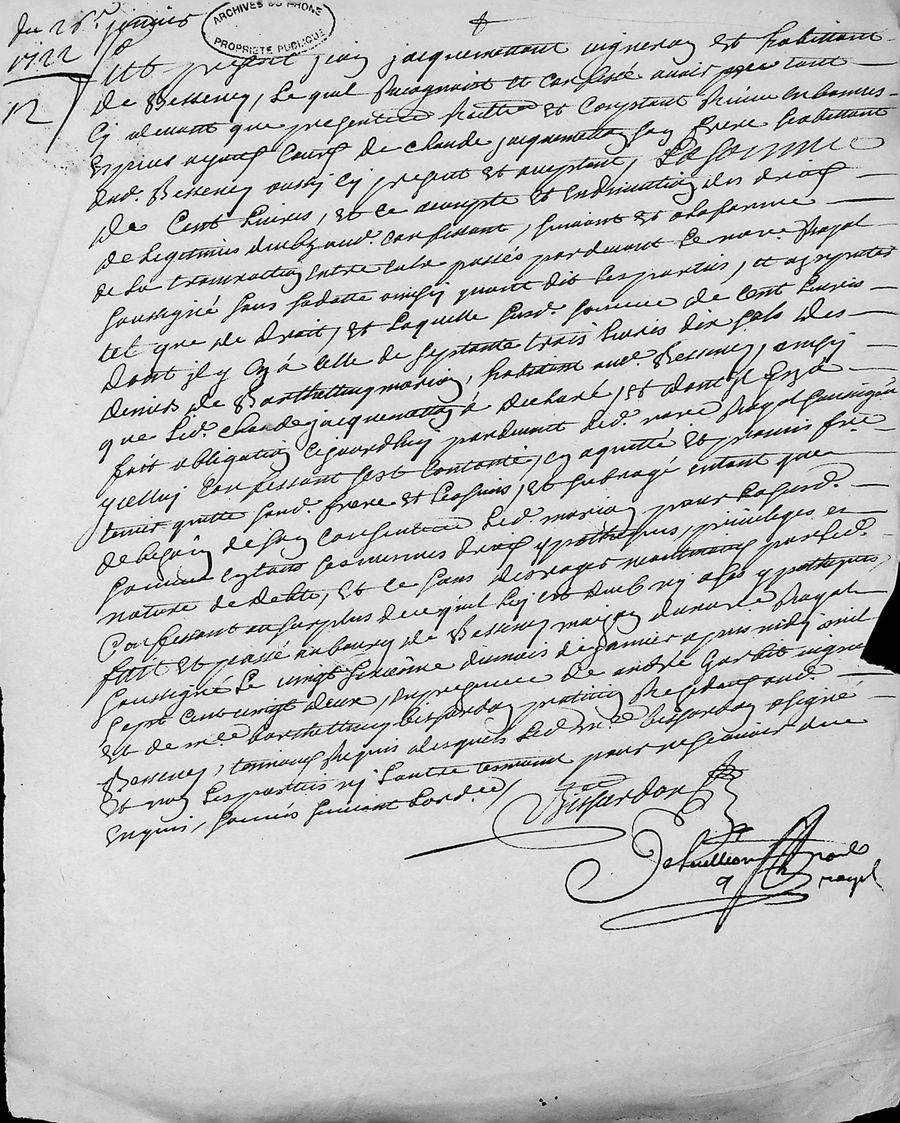 du 26e janvier
1722
12
ARCHIVES DU RHONE
PROPRIETE PUBLIQUE
fut present jean jacquemettant vigneron et habittant
de Bessenay, Lequel Recognoist et confesse avoir
cy devant que presentem. Realem. et comptant Receu en bonnes
espèces ayant cours de claude jacquemettant son frere habittant
aud. Bessenay aussy cy present et acceptant, La somme
de Cent Livres, et ce acompte et en diminution des droits
de Legitimes confessant, suivant et a la forme
de La transaction entre eulx passés pardevant Le no.re Royal
soussigné sous sa datte ainsy quont dit Les parties, et
tel que de droit, et Laquelle susd. somme de cent Livres
dont il y en a celle de septante trois Livres dix sols des
deniers de Barthellemy marion, habitant aud. Bessenay, ainsy
que Led. claude jacquemettant a declaré, et dont il en a
fait obligation cejourdhuy pardevant Led. no.re Royal soussigné
jcelluy confessant sest contanté, en a quitté et promis fre
tenir quitte sond. frere et Les siens, et subrogé entant que
de besoin de son consentem. Led. marion pour Lad.
somme en tous ses mesmes droits ypotheques, privileges et
nature de debte, et ce sans desroger par Led.
Confessant au surplus de ce qui Luy est deub ny a ses ypotheques,
fait et passé au bourg de Bessenay maison du no.re Royal
soussigné Le vingt sixiême du mois de janvier apres midy mil
sept cent vingt deux, en presence de andré Garbit vigneron
et de m.re barthellemy bissardon praticien Residant aud.
Bessenay, temoins Requis desquels Led. m.re bissardon a signé
et non Les parties ny Lautre temoing pour ne sçavoir de ce
enquis, sommés suivant Lord.ce,
Bissardon
no.re
royal